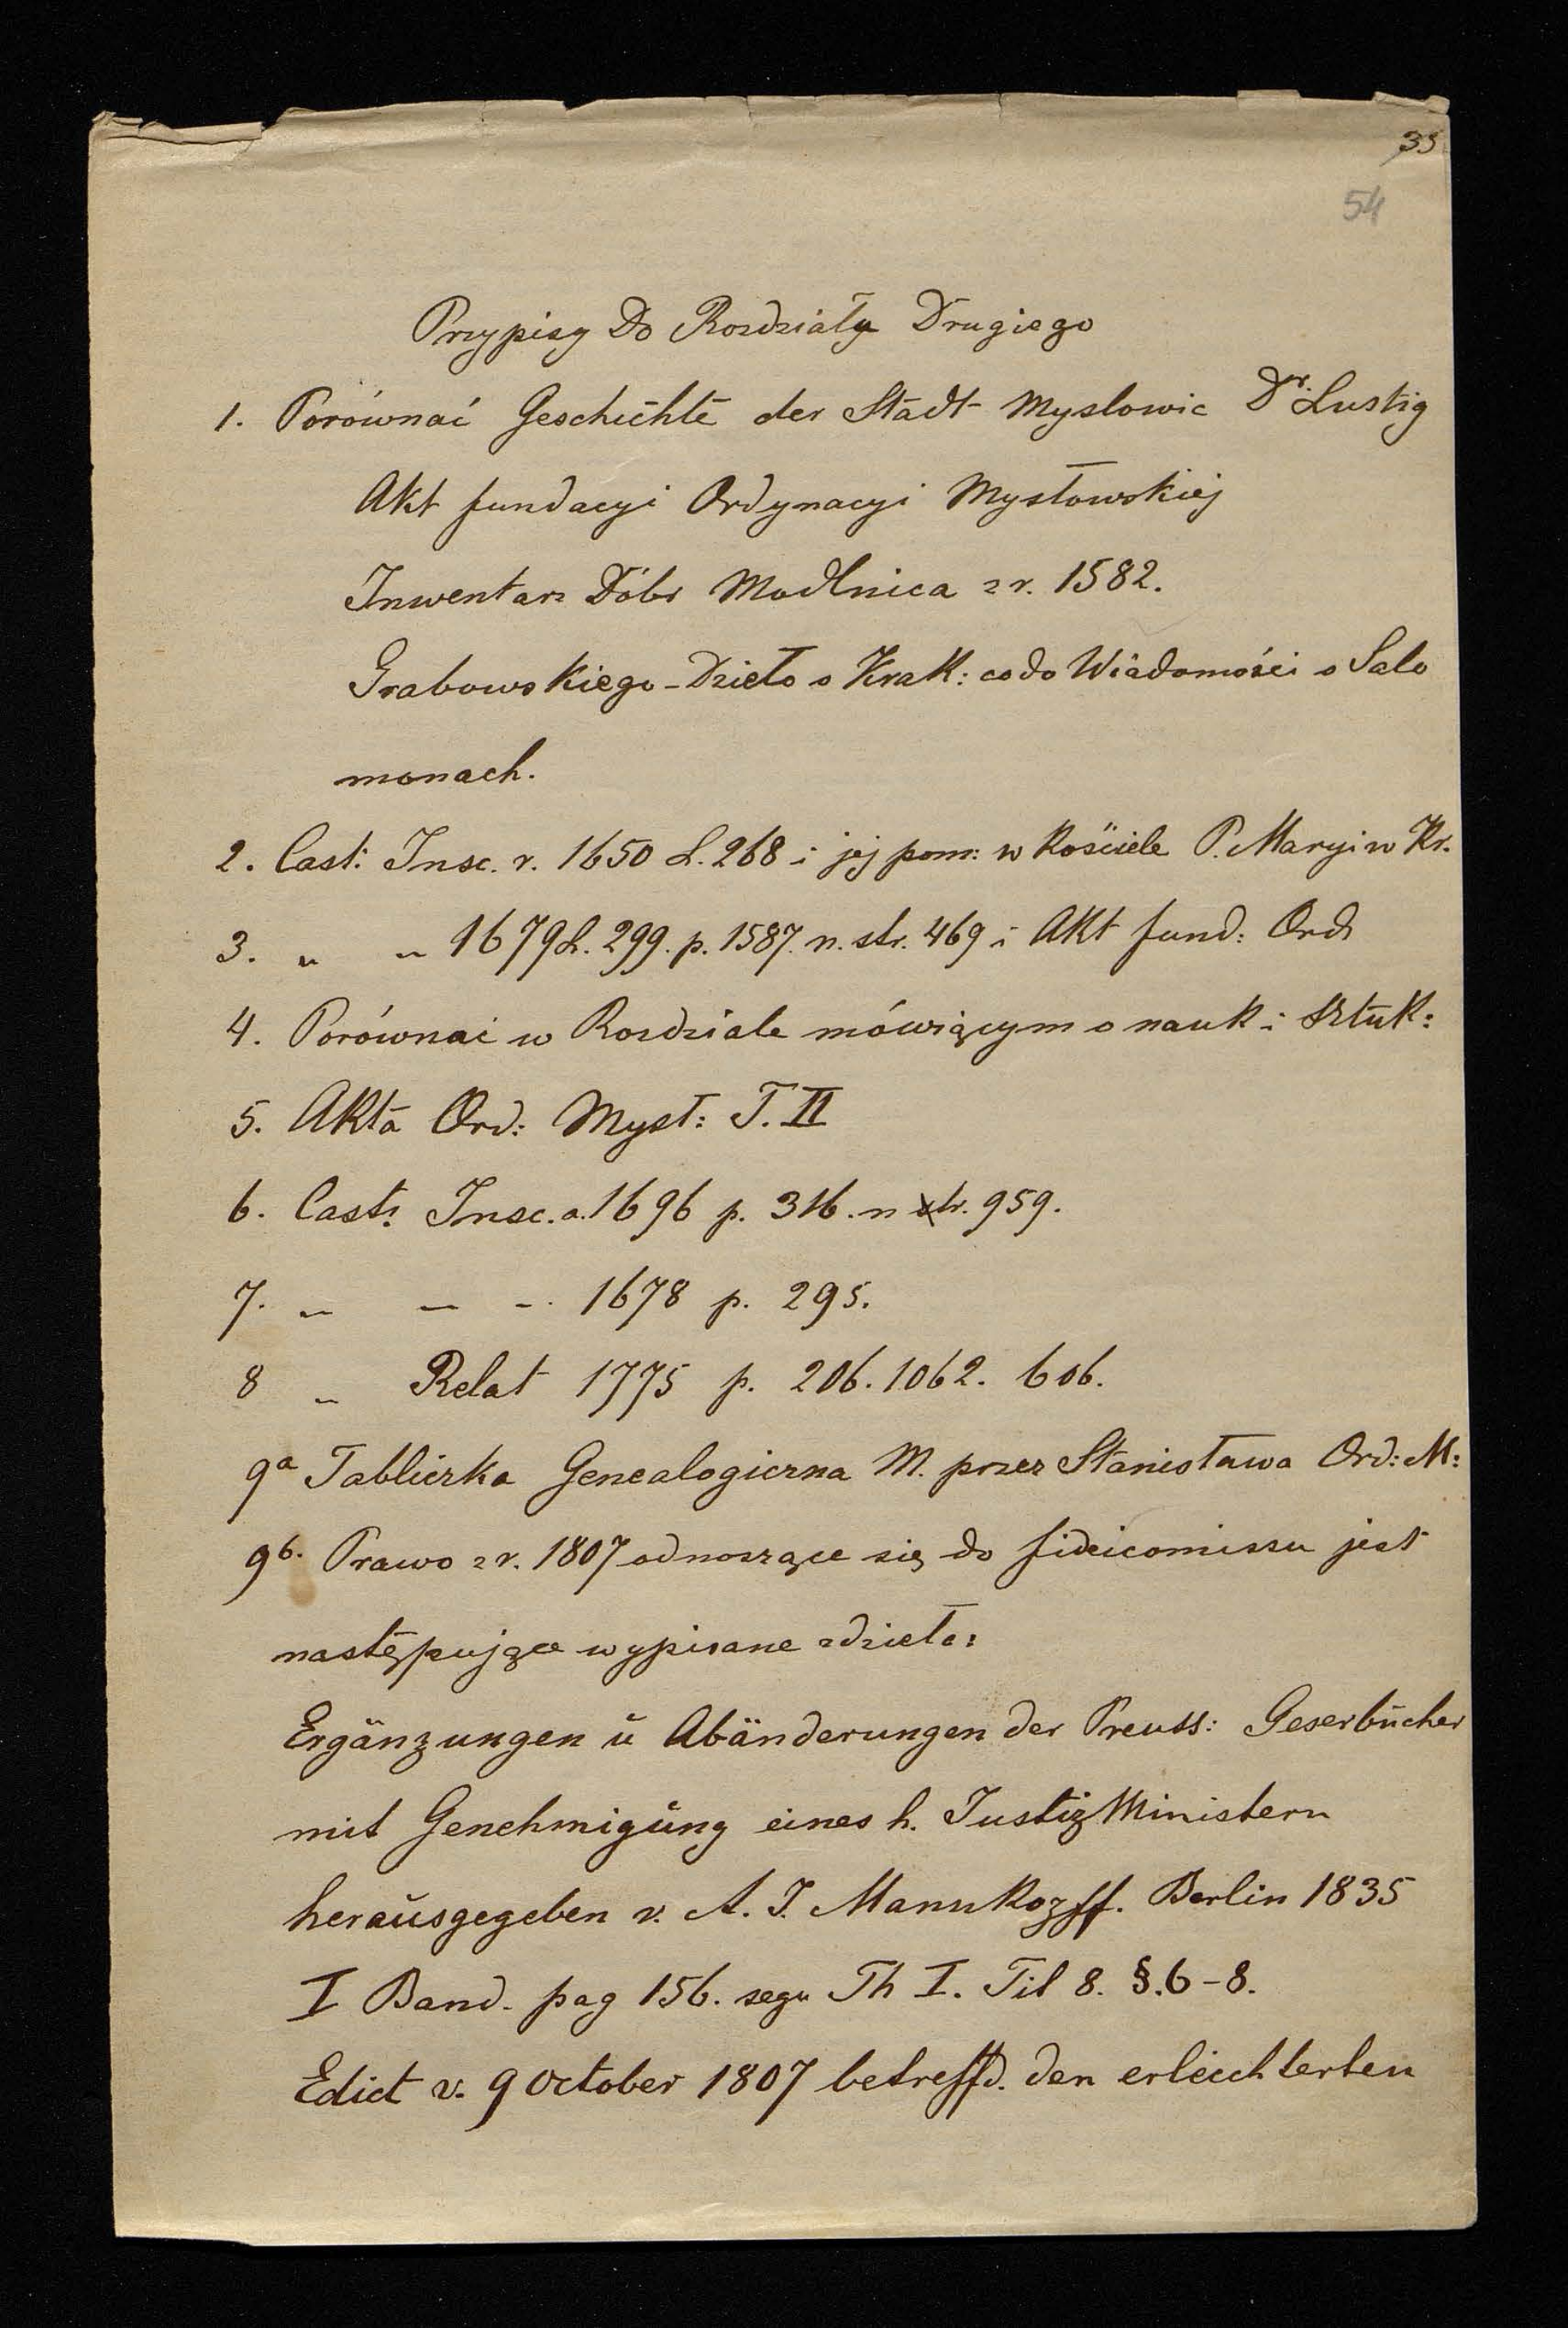 33
54
Przypisy Do Rozdziału Drugiego
1. Porównać Geschichte der Stadt Myslowic Dr. Lustig
Akt fundacyi Ordynacyi Mysłowskiej
Inwentarz Dóbr Modlnica z r. 1582.
Grabowskiego - Dzieło o Krak: co do Wiadomości o Salo
monach.
2. Cast: Insc. r. 1650 L. 268 i jej pom: w Kościele P. Maryi w Kr.
3. " " 1679 L. 299. p. 1587. n. str. 469 i Akt fund: Ord
4. Porównać w Rozdziale mówiącym o nauk i sztuk:
5. Akta Ord: Mysł: T. II
6. Cast: Insc. a. 1696 p. 316. n str. 959.
7. " " " 1678 p. 295.
8 " Relat 1775 p. 206. 1062. 606.
9a Tabliczka Genealogiczna M. przez Stanisława Ord: M:
9b. Prawo z r. 1807 odnoszące się do fideicomissu jest
następujące wypisane z dzieła:
Ergänzungen ŭ Abänderungen der Preuss: Gesezbücher
mit Genehmigŭng eines h. Justiz Ministern
heraŭsgegeben v. A. J. Mannkozff. Berlin 1835
I Band. pag 156. segu Th I. Til 8. §. 6-8.
Edict v. 9 October 1807 betreffd. den erleichterten